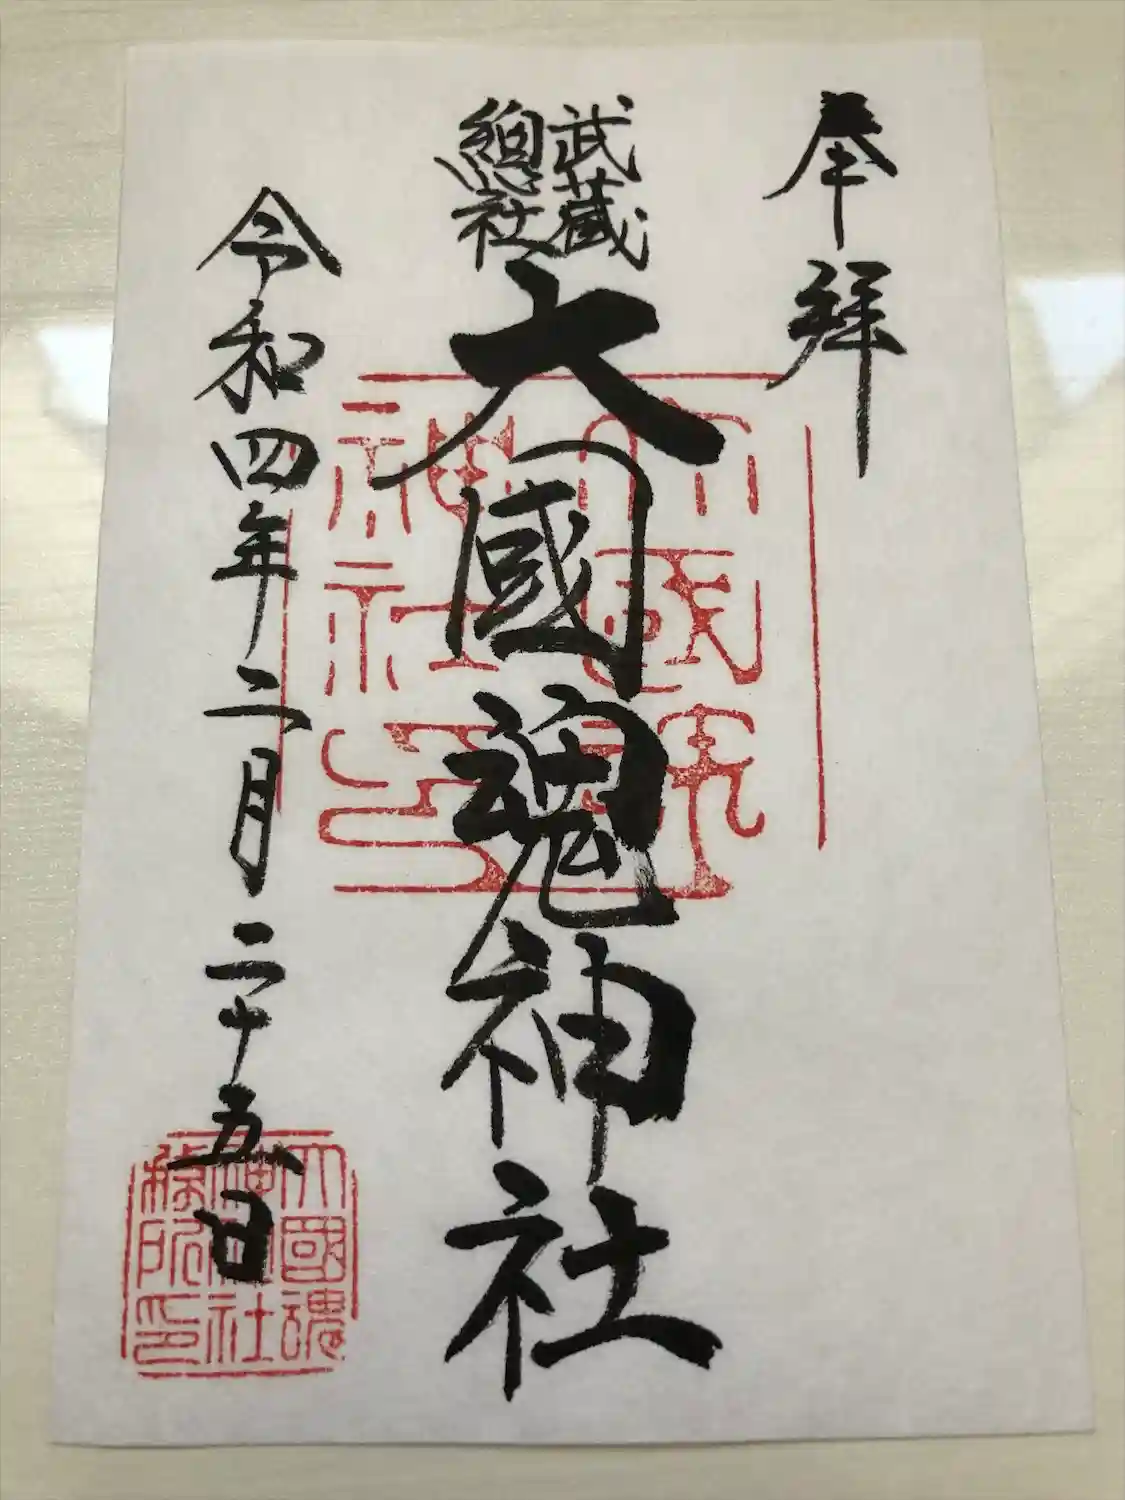 奉拝
武蔵
總社
大國魂神社
令和四年二月二十五日
大國魂
神社印
大國魂
神社
務所印